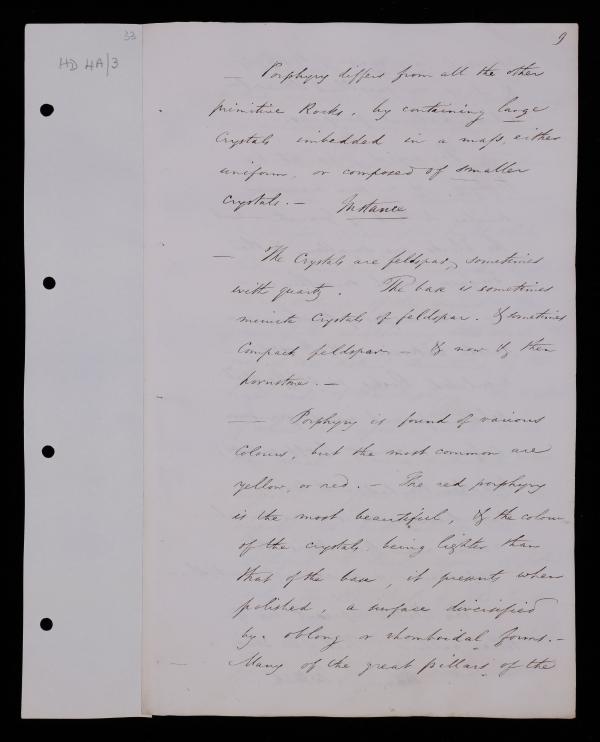 33
HD 4A/3
9
— Porphyry differs from all the other
primitive Rocks, by containing large
Crystals imbedded in a mass, either
uniform, or composed of smaller
crystals. — Instance
— The Crystals are feldspar, sometimes
with quartz. The base is sometimes
minute Crystals of feldspar. & sometimes
Compact feldspar — & now & then
hornstone. —
—— Porphyry is found of various
Colours, but the most common are
yellow, or red. — The red porphyry
is the most beautiful, & the colour
of the crystals being lighter than
that of the base, it presents when
polished, a surface diversified
by oblong or rhomboidal forms. —
— Many of the great pillars of the